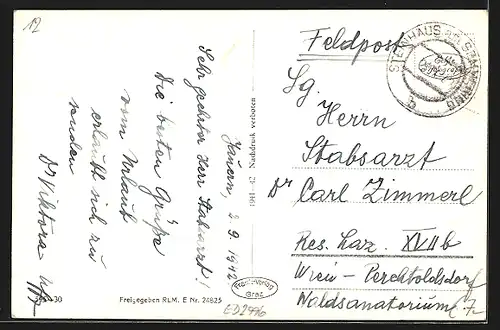 12
Jauern, 2. 9. 1942
Sehr geehrter Herr Stabsarzt!
Die besten Grüße
vom Urlaub
erlaubt sich zu
senden
Dr Viktora
30
Freigegeben RLM. E Nr. 24825
1941-42 Nachdruck verboten
Feldpost
STEINHAUS AM SEMMERING
b
Sg.
Herrn
Stabsarzt
Dr Carl Zimmerl
Res. Laz. XVII b
Wien - Perchtoldsdorf
Waldsanatorium
Verlag
Graz